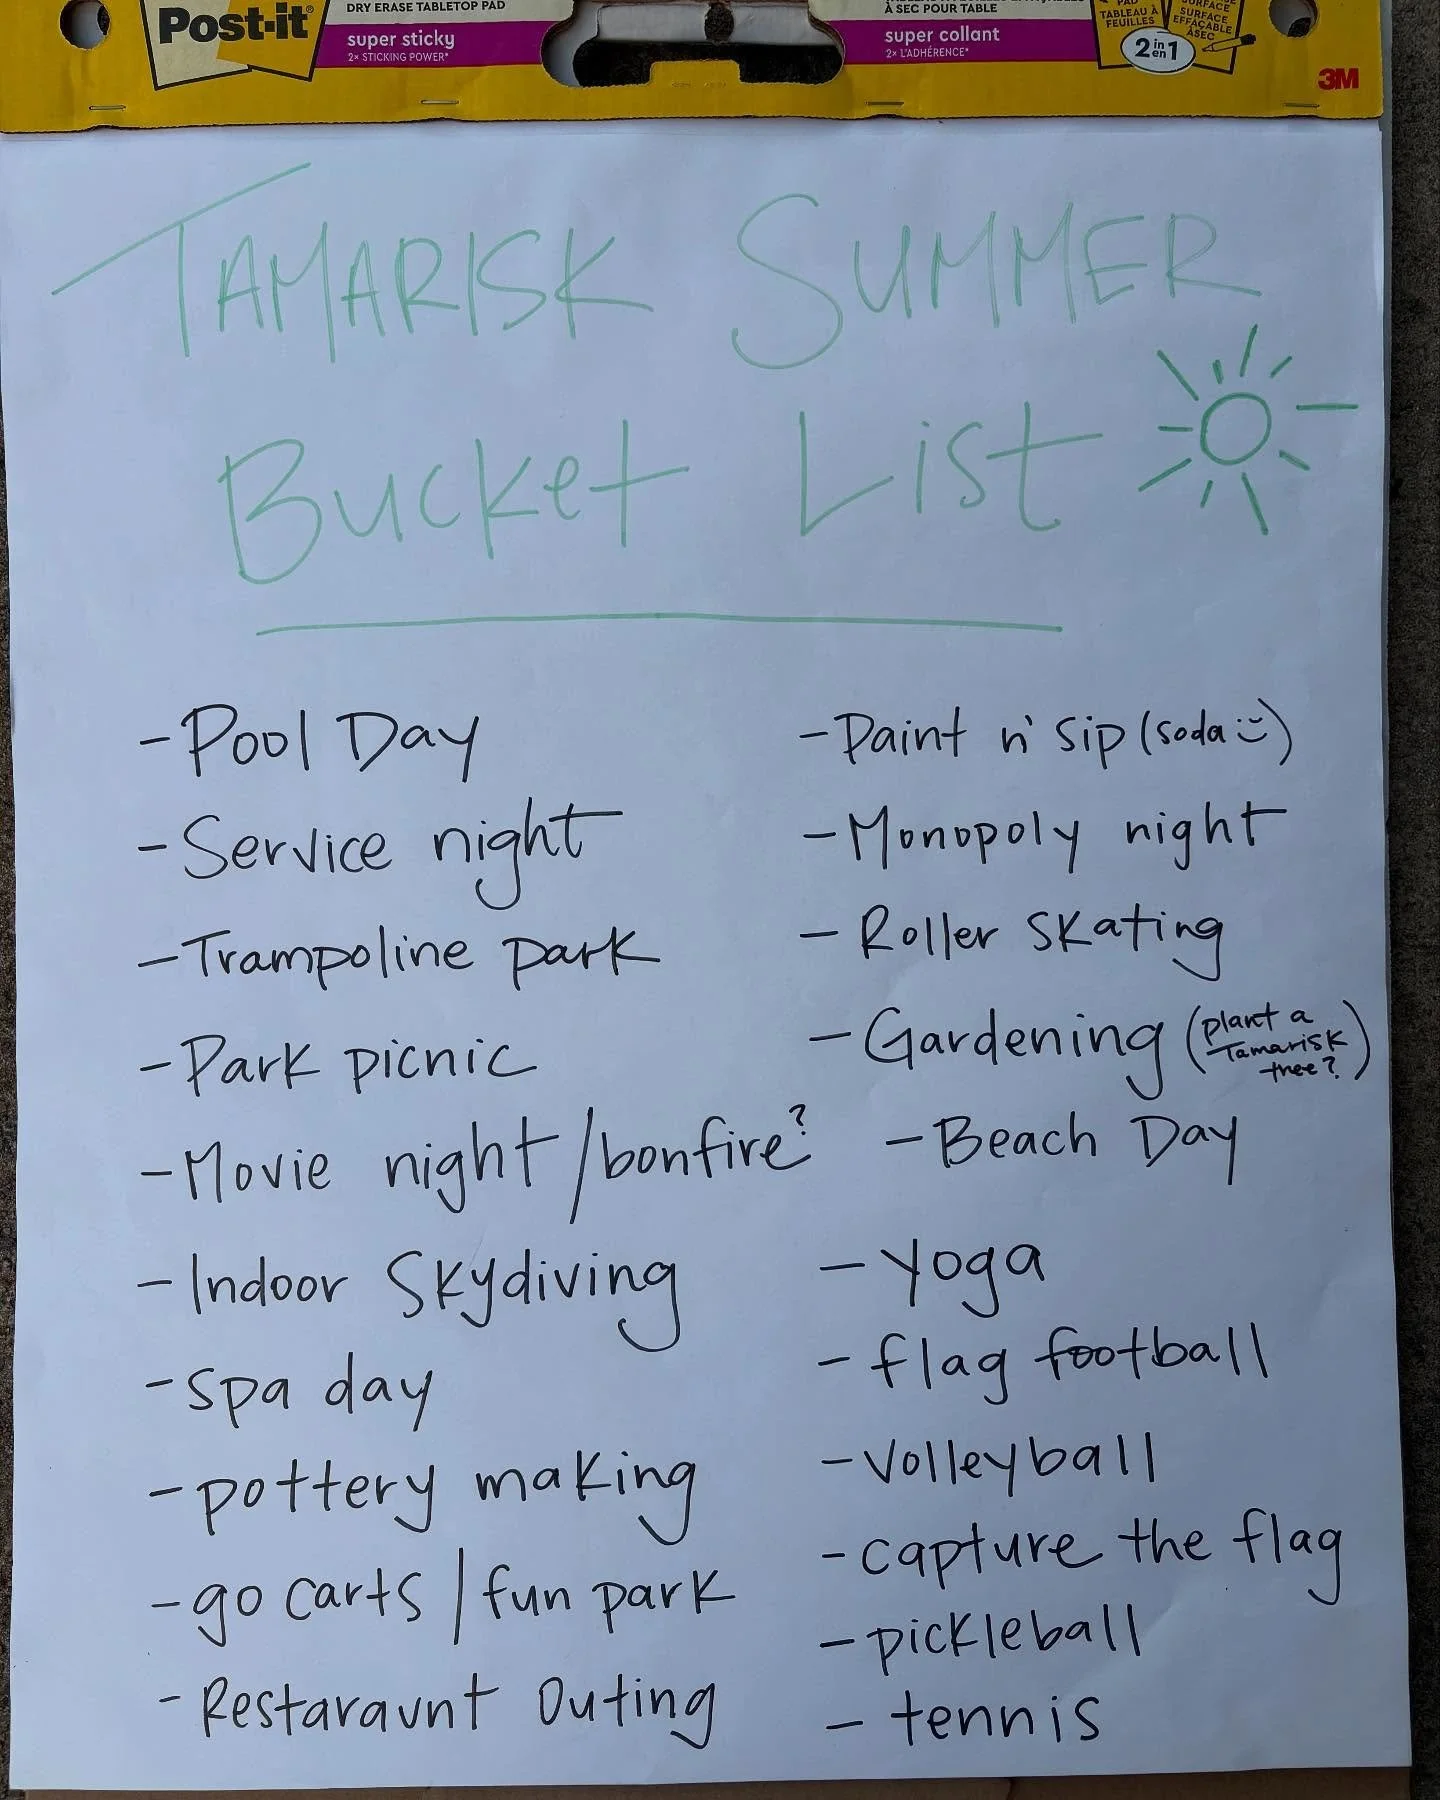 Post-it®
DRY ERASE TABLETOP PAD
super sticky
2× STICKING POWER*
À SEC POUR TABLE
super collant
2× L'ADHÉRENCE*
TABLEAU À
FEUILLES
SURFACE
SURFACE
EFFAÇABLE
À SEC
2 in en 1
3M
TAMARISK SUMMER
Bucket List
- Pool Day
- Service night
- Trampoline park
- Park picnic
- Movie night / bonfire?
- Indoor Skydiving
- spa day
- pottery making
- go carts / fun park
- Restaraunt Outing
- Paint n' sip (soda :))
- Monopoly night
- Roller skating
- Gardening (plant a
Tamarisk
tree?)
- Beach Day
- yoga
- flag football
- volleyball
- capture the flag
- pickleball
- tennis